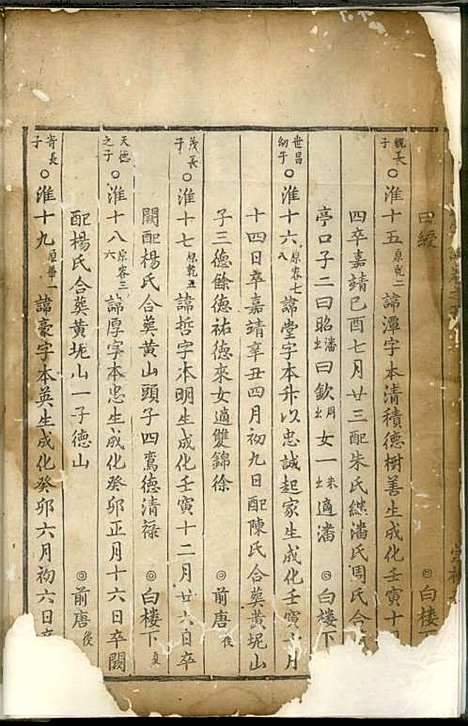 曰綬 ◎白樓下
親長子 ○淮十五原乾二諱潭字本清積德樹善生成化壬寅十
四卒嘉靖己酉七月廿三配朱氏繼潘氏周氏合
亭口子二曰昭潘出曰欽周出女一朱出適潘 ◎白樓下
世昌幼子 ○淮十六原容七八諱堂字本升以忠誠起家生成化壬寅 月
十四日卒嘉靖辛丑四月初九日配陳氏合葬黄坭山
子三德餘德祐德來女適雙錦徐 ◎前唐後
茂長子 ○淮十七原乾五諱哲字本明生成化壬寅十二月廿六日卒
闕配楊氏合葬黄山頭子四鸞德清禄 ◎白樓下
天德之子 ○淮十八原容三六諱厚字本忠生成化癸卯正月十六日卒闕
配楊氏合葬黄坭山一子德山 ◎前唐後
寄長子 ○淮十九諱豪字本英生成化癸卯六月初六日卒